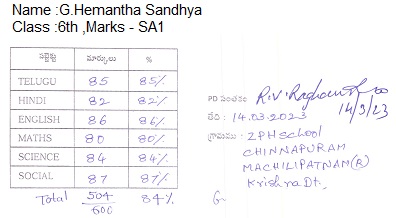 Name :G.Hemantha Sandhya
Class :6th ,Marks - SA1
సబ్జెక్టు మార్కులు %
TELUGU 85 85%
HINDI 82 82%
ENGLISH 86 86%
MATHS 80 80%
SCIENCE 84 84%
SOCIAL 87 87%
Total 504/600 84%
PD సంతకం R.V.Raghava
14/3/23
తేది : 14.03-2023
గ్రామము : ZPH School
CHINNAPURAM
MACHILIPATNAM (R)
Krishna Dt.
G